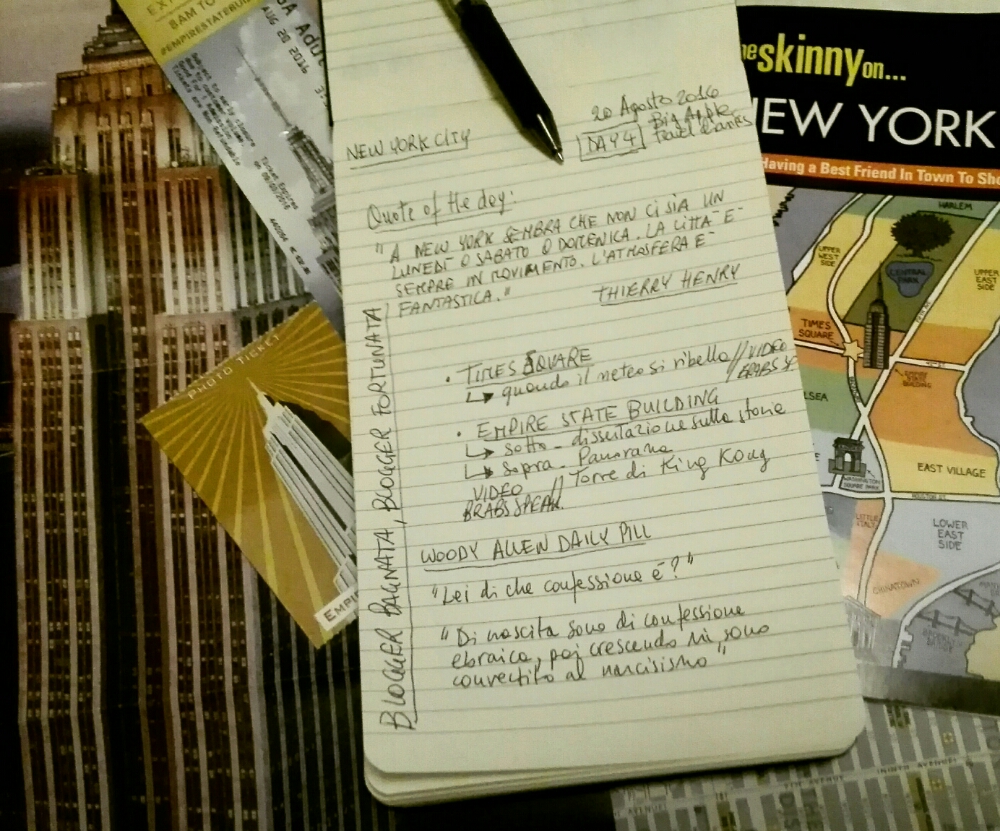 8AM TO
#EMPIRESTATEBUI
AUG 20 2016
Ticket Expires
on 09/09/2016
PHOTO TICKET
EMPI
NEW YORK CITY
20 Agosto 2016
DAY 4
Big Apple
Quote of the day:
"A NEW YORK SEMBRA CHE NON CI SIA UN
LUNEDI' O SABATO O DOMENICA. LA CITTA' E'
SEMPRE IN MOVIMENTO. L'ATMOSFERA E'
FANTASTICA."
THIERRY HENRY
• TIMES SQUARE
↳ quando il meteo si ribella // VIDEO
BRABS SP
• EMPIRE STATE BUILDING
↳ sotto - dissertazione sulla storia
↳ sopra - Panorama
// Torre di King Kong
VIDEO
BRABS SPEAK
WOODY ALLEN DAILY PILL
"Lei di che confessione è?"
"Di nascita sono di confessione
ebraica, poi crescendo mi sono
convertito al narcisismo"
BLOGGER BAGNATA, BLOGGER FORTUNATA
he skinny on...
EW YORK
Having a Best Friend In Town To Sho
HARLEM
UPPER
WEST
SIDE
CENTRAL
PARK
UPPER
EAST
SIDE
TIMES
SQUARE
EMPIRE
STATE
BUILDING
LSEA
WASHINGTON
SQUARE PARK
EAST VILLAGE
HOUSTON ST
LITTLE
LOWER
EAST
SIDE
CHINATOWN
AVENUE
(NINTH AVENUE)
AVENUE)